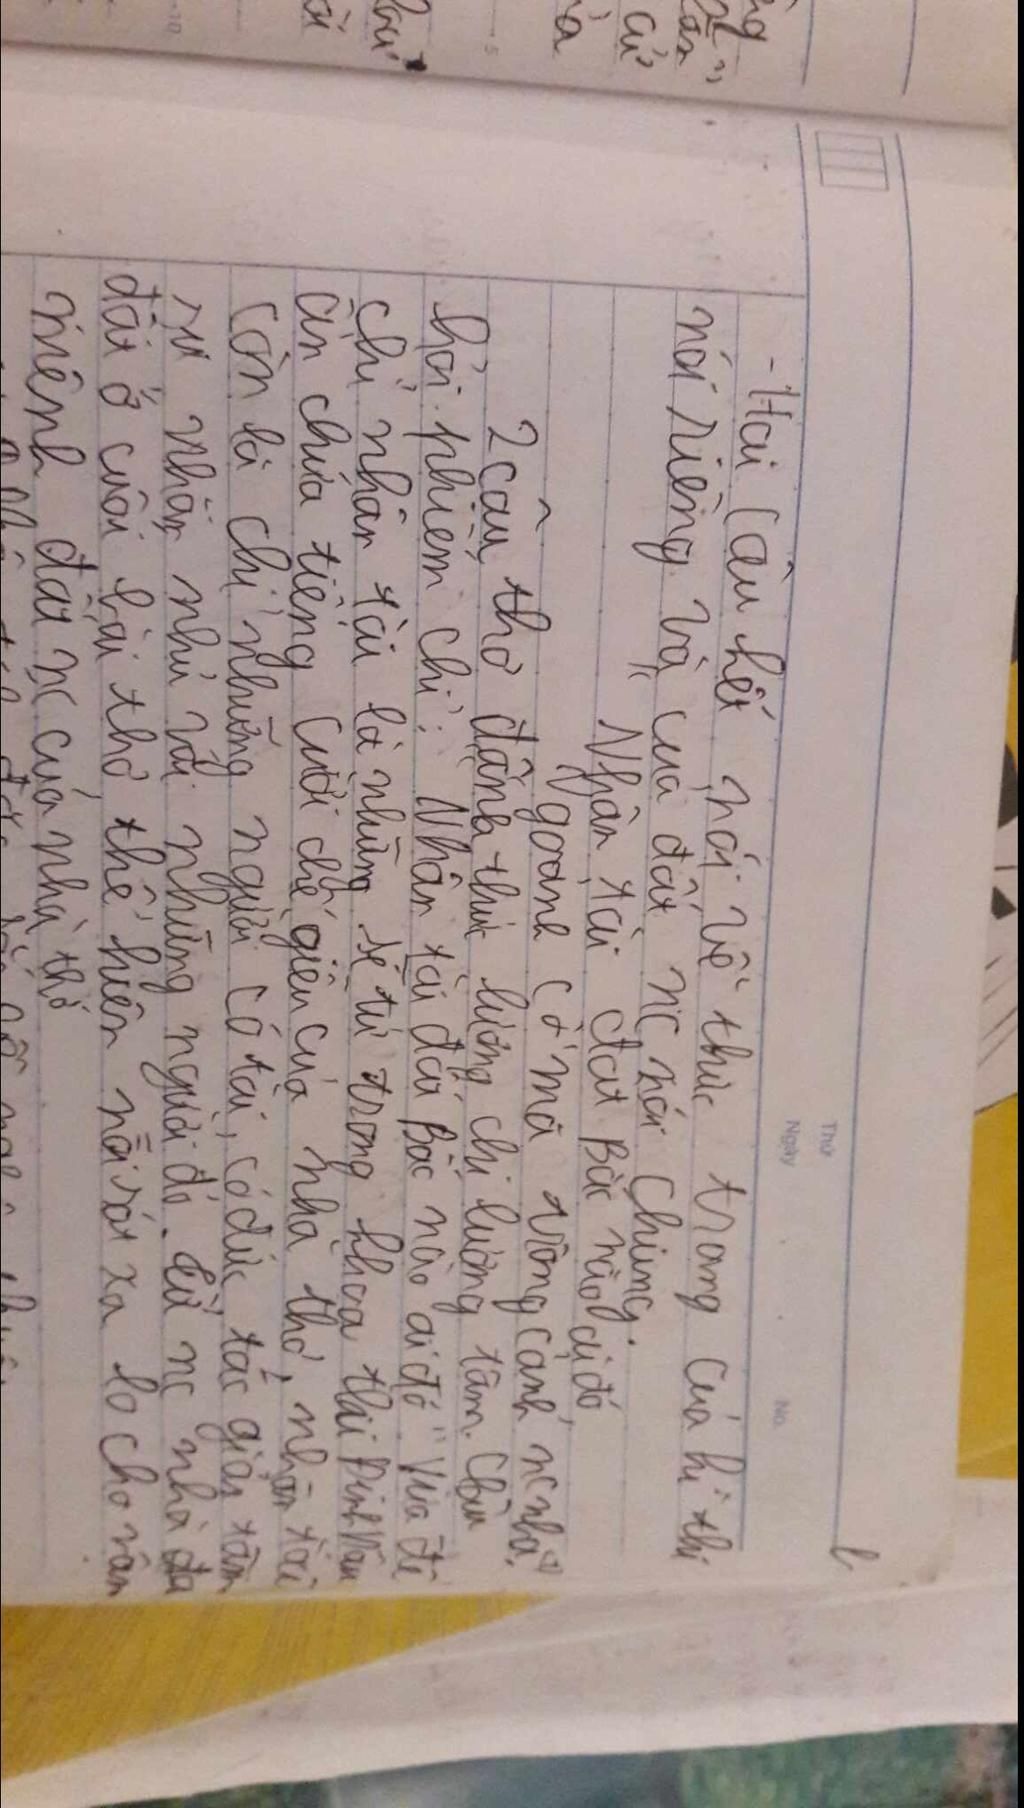 Thứ
Ngày
No.
- Hai câu hết nói về thực trạng của kì thi
nói riêng và của đất nc nói chung.
" Nhân tài đất Bắc nào ai đó,
ngoảnh cổ mà trông cảnh nc nhà "
2 câu thơ đánh thức lương chi lương tâm. Câu
hỏi phiếm chỉ: Nhân tài đất Bắc nào ai đó " Vừa để
chỉ nhân tài là những sĩ tử trong khoa thi Đinh Dậu
ẩn chứa tiếng cười chế giễu của nhà thơ, nhân tài
còn là chỉ những người có tài, có đức tác giả tâm
sự nhắn nhủ với những người đó. Từ nc nhà đc
đặt ở cuối bài thơ thể hiện nỗi xót xa lo cho vận
mệnh đất nc của nhà thơ